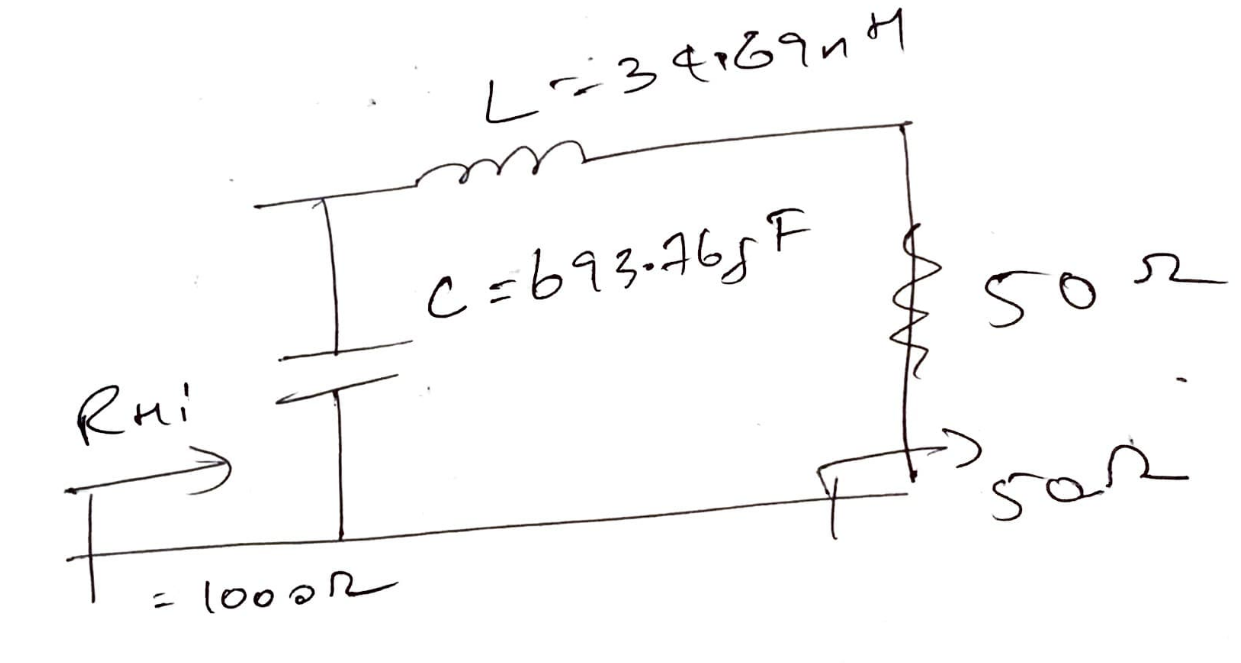 L = 34.69nH
C = 693.76fF
50 Ω
RHi
50Ω
= 1000Ω